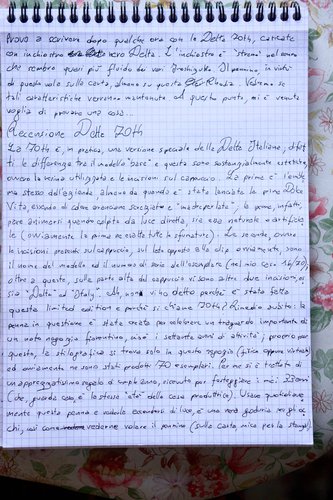 Provo a scrivere dopo qualche ora con la Delta 70th, caricata
con inchiostro nero Delta. L'inchiostro è "strano" nel senso
che sembra quasi più fluido dei vari Iroshizuku. Il pennino, in virtù
di questo vola sulla carta, almeno su questa Rhodia. Vedremo se
tali caratteristiche verranno mantenute. A questo punto, mi è venuta
voglia di provare una cosa...
Recensione Delta 70th
La 70th è, in pratica, una versione speciale della Delta Italiana; difat
ti le differenze tra il modello "base" e questa sono sostanzialmente estetiche,
ovvero la resina utilizzata e le incisioni sul cappuccio. La prima è l'emble
ma stesso dell'azienda almeno da quando è stata lanciata la prima Dolce
Vita, essendo di colore arancione screziato e "madreperlato"; la penna, infatti,
pare animarsi quando colpita da luce diretta, sia essa naturale o artificia
le (ovviamente la prima ne esalta tutte le sfumature). Le seconde, ovvero
le incisioni presenti sul cappuccio, sul lato opposto alla clip ovviamente, sono
il nome del modello ed il numero di serie dell'esemplare (nel mio caso 16/70);
oltre a queste, sulla parte alta del cappuccio vi sono altre due incisioni, os
sia "Delta" ed "Italy". Ah, non vi ho detto perché è stata fatta
questa limited edition e perché si chiama 70th? Rimedio subito: la
penna in questione è stata creata per celebrare un traguardo importante di
un noto negozio fiorentino, ossia i settanta anni di attività; proprio per
questo, la stilografica si trova solo in questo negozio (fisica oppure virtuale)
ed ovviamente ne sono stati prodotti 70 esemplari. Per me si è trattato di
un apprezzatissimo regalo di compleanno, ricevuto per festeggiare i miei 35 anni
(che, guarda caso, è la stessa "età" della casa produttrice). Usare quotidiana
mente questa penna e vederla accendersi di luce, è una vera goduria per gli oc
chi, così come vederne volare il pennino (sulla carta, mica per la stanza!).